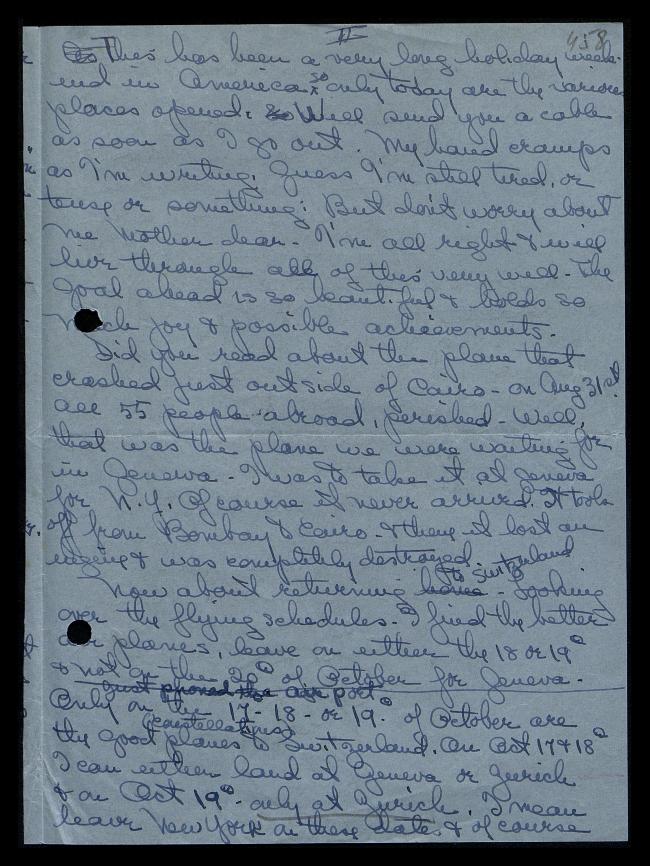 II
458
This has been a very long holiday week-
end in America so only today are the various
places opened. Will send you a cable
as soon as I go out. My hand cramps
as I'm writing. Guess I'm still tired, or
tense or something. But don't worry about
me Mother dear. I'm all right & will
live through all of this very well. The
goal ahead is so beautiful & holds so
much joy & possible achievements.
Did you read about the plane that
crashed just outside of Cairo - on Aug 31st.
all 55 people abroad, perished - Well,
that was the plane we were waiting for
in Geneva - I was to take it at Geneva
for N.Y. Of course it never arrived. It took
off from Bombay to Cairo - & there it lost an
engine & was completely destroyed.
Now about returning home to Switzerland - Looking
over the flying schedules - I find the better
air planes, leave on either the 18 or 19
& not on the 20 of October for Geneva -
Just phoned the air port
Only on the 17 - 18 - or 19. of October are
the good planes (Constellations) to Switzerland. On Oct 17 & 18
I can either land at Geneva or Zurich
& on Oct 19 - only at Zurich. I mean
leave New York on these dates & of course